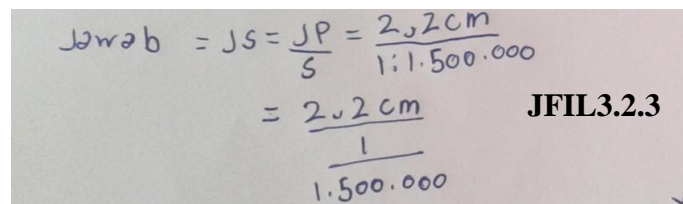 Jawab = JS = JP/S = 2,2 cm/1:1.500.000
= 2,2 cm/1/1.500.000
JFIL3.2.3